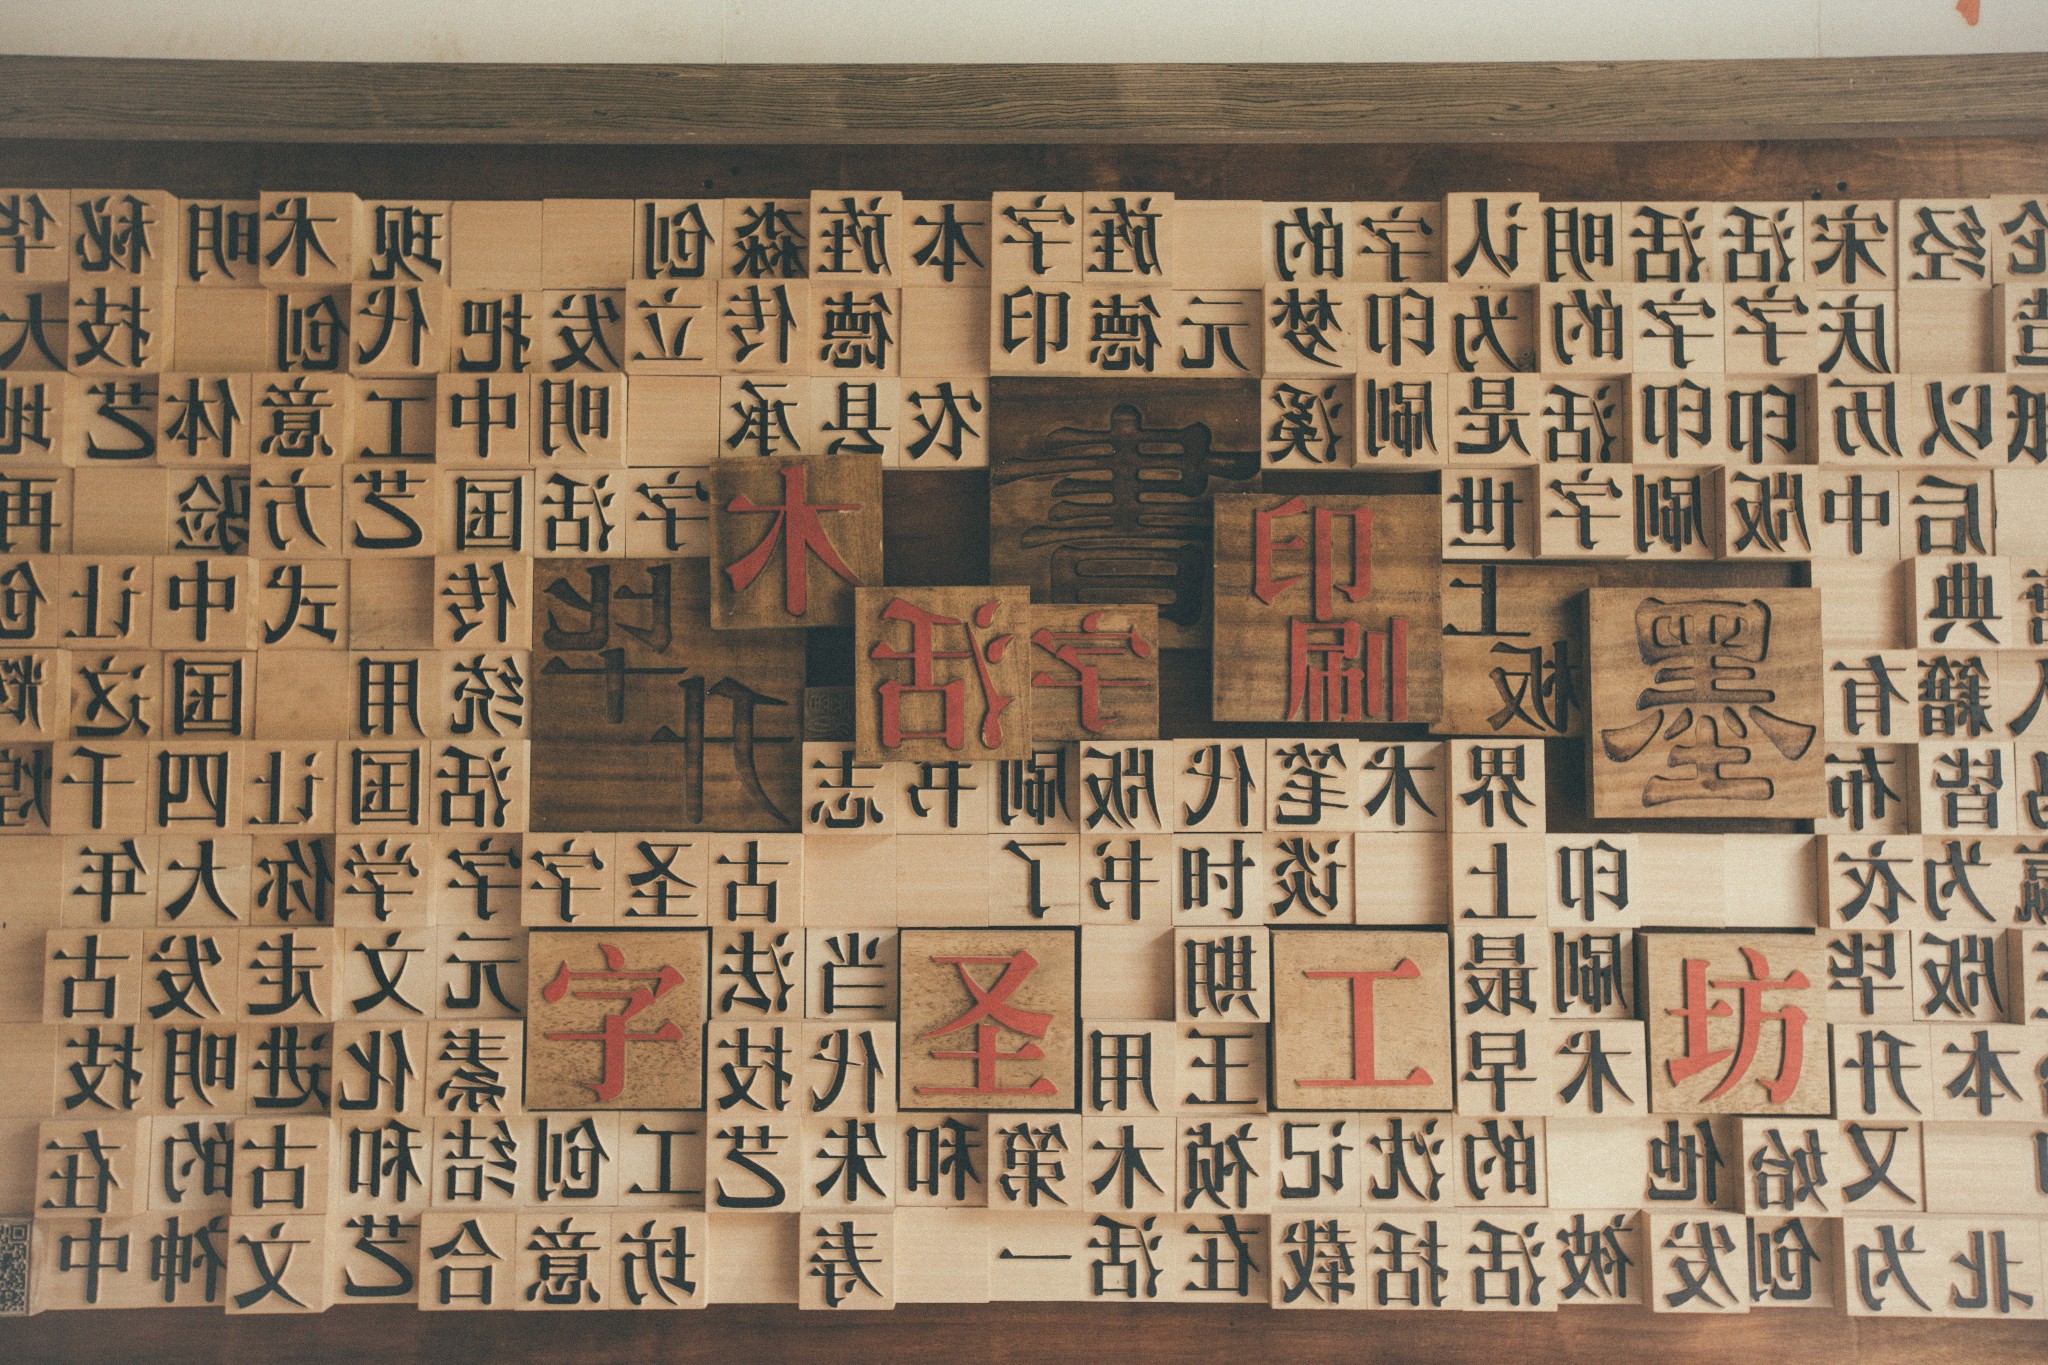 论造纸唐人冯瀛王始印
经以后典籍皆为版本北
宋庆历中有布衣毕升又为
活字印版始创
活字印刷他发
明的活字印刷术被
认为是世界上最早的活
字印刷术沈括
的梦溪笔谈记载
元代时期王祯在
旌德版书用木活
字印刷了第一
本农书和
旌德县志当代朱寿
淼传承古法技艺
创立字圣工坊
发明活字创意
把中国传统活字元素结合
现代工艺用国学文化和艺
术创意方式让你走进古文
明体验中国四大发明的神
秘技艺让这千年古技在中
华大地再创辉煌
木活字印刷
書
墨
毕升
上板
字圣工坊